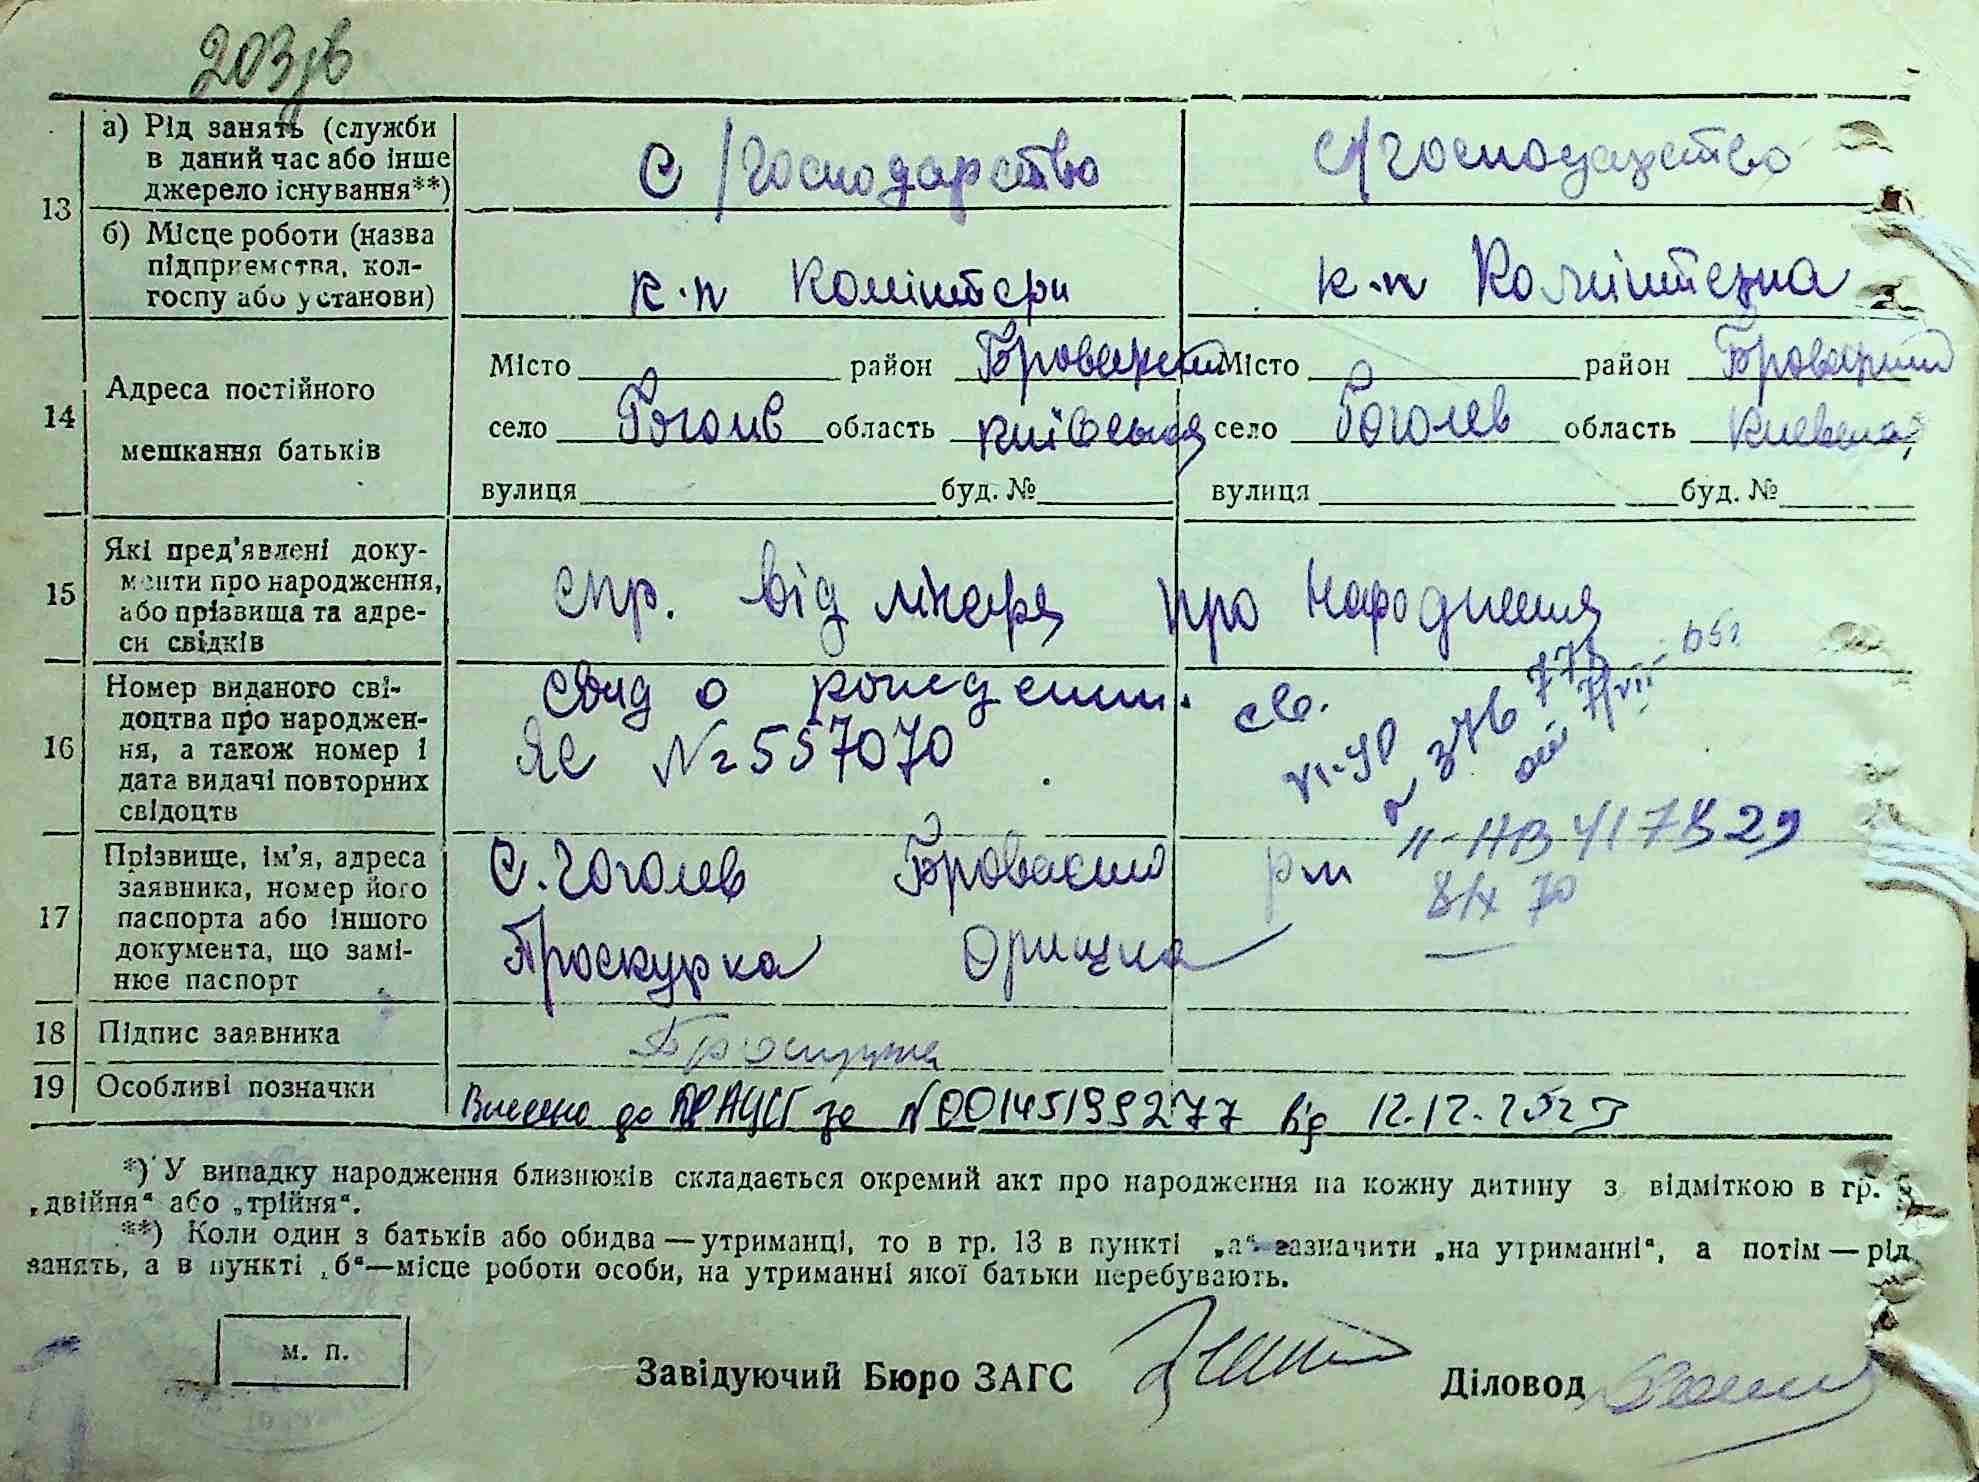 203зв
13
а) Рід занять (служби
в даний час або інше
джерело існування**)
С/господарство
с/господарство
б) Місце роботи (назва
підприємства, кол-
госпу або установи)
к-п Комінтерн
к-п Комінтерна
14
Адреса постійного
мешкання батьків
Місто район Броварський
село Гоголів область київська
вулиця буд. №
Місто район Броварский
село Гоголев область Киевская
вулиця буд. №
15
Які пред'явлені доку-
менти про народження,
або прізвища та адре-
си свідків
спр. від лікаря про народження
16
Номер виданого сві-
доцтва про народжен-
ня, а також номер і
дата видачі повторних
свідоцтв
свид о рождении.
ЯС № 557070
св.
376
II-НВ 417829
8/IX 70
17
Прізвище, ім'я, адреса
заявника, номер його
паспорта або іншого
документа, що замі-
нює паспорт
С. Гоголев Броварский р-н
Проскурка Оришка
18
Підпис заявника
19
Особливі позначки
Внесено до ДРАЦСГ за №00145199277 від 12.12.2023
*) У випадку народження близнюків складається окремий акт про народження на кожну дитину з відміткою в гр. 5
„двійня“ або „трійня“.
**) Коли один з батьків або обидва — утриманці, то в гр. 13 в пункті „а“ зазначити „на утриманні“, а потім — рід
занять, а в пункті „б“—місце роботи особи, на утриманні якої батьки перебувають.
м. п.
Завідуючий Бюро ЗАГС
Діловод